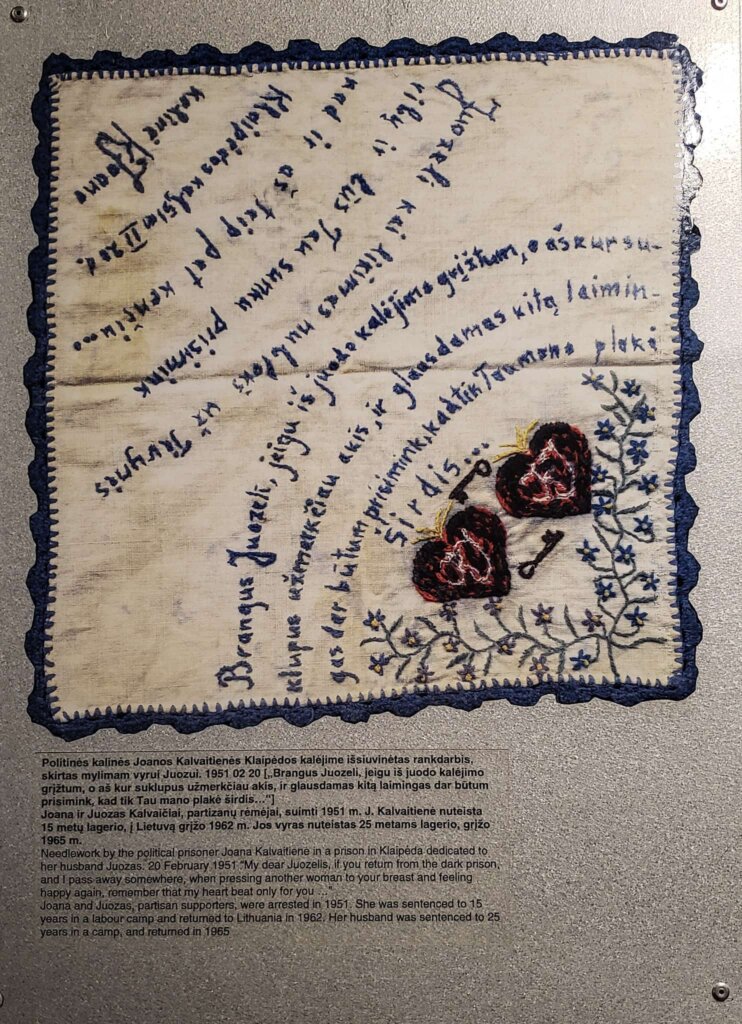 Brangus Juozeli, jeigu iš juodo kalėjimo grįžtum, o aš kur su-
klupus užmerkčiau akis, ir glausdamas kitą laimin-
gas dar būtum prisimink, kad tik Tau mano plakė
širdis...
Juozeli kai likimas nublokš už Tėvynės
ribų ir bus Tau sunku prisimink
kad ir aš taip pat kenčiu...
Klaipėdos kalėjim II 20d.
kalinė KJoana
Politinės kalinės Joanos Kalvaitienės Klaipėdos kalėjime išsiuvinėtas rankdarbis,
skirtas mylimam vyrui Juozui. 1951 02 20 [„Brangus Juozeli, jeigu iš juodo kalėjimo
grįžtum, o aš kur suklupus užmerkčiau akis, ir glausdamas kitą laimingas dar būtum
prisimink, kad tik Tau mano plakė širdis...“]
Joana ir Juozas Kalvaičiai, partizanų rėmėjai, suimti 1951 m. J. Kalvaitienė nuteista
15 metų lagerio, į Lietuvą grįžo 1962 m. Jos vyras nuteistas 25 metams lagerio, grįžo
1965 m.
Needlework by the political prisoner Joana Kalvaitienė in a prison in Klaipėda dedicated to
her husband Juozas. 20 February 1951 "My dear Juozelis, if you return from the dark prison,
and I pass away somewhere, when pressing another woman to your breast and feeling
happy again, remember that my heart beat only for you ..."
Joana and Juozas, partisan supporters, were arrested in 1951. She was sentenced to 15
years in a labour camp and returned to Lithuania in 1962. Her husband was sentenced to 25
years in a camp, and returned in 1965